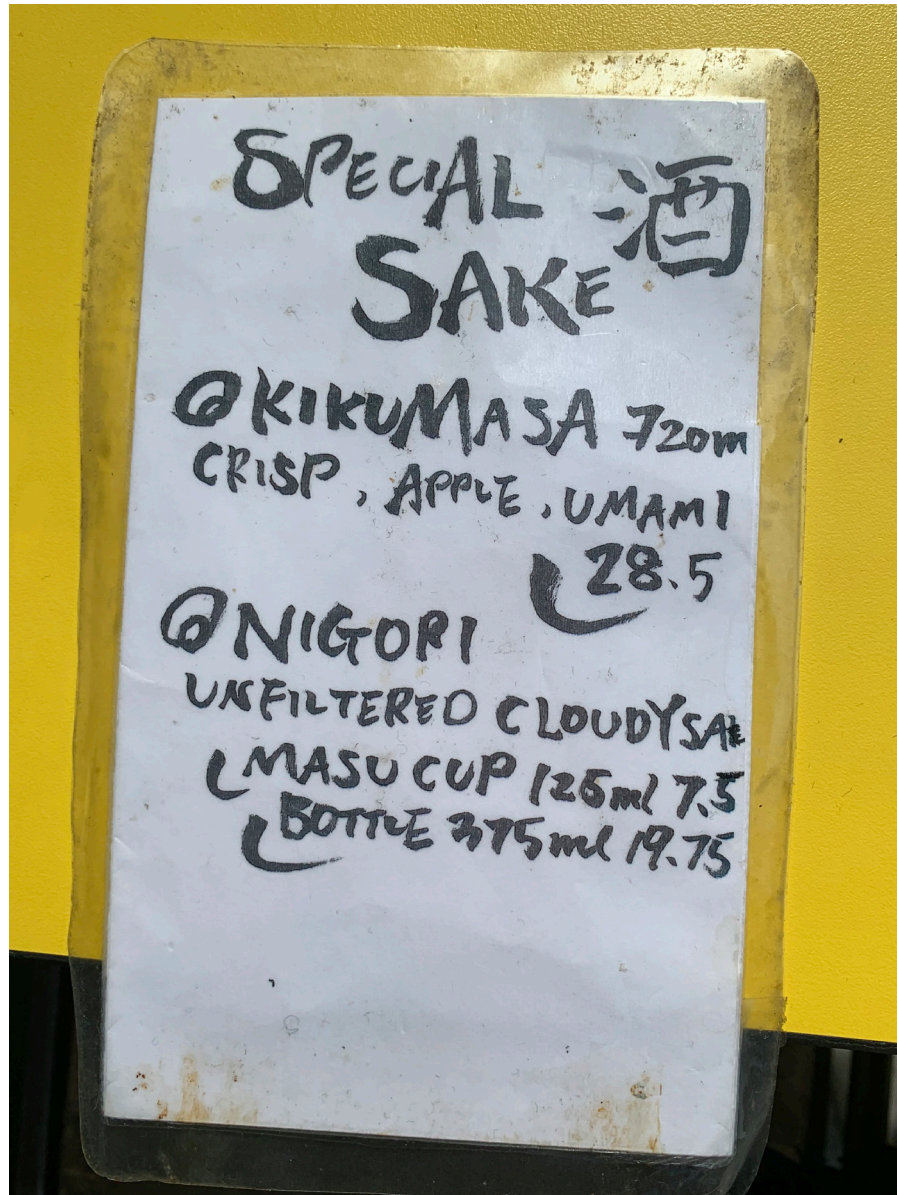 SPECIAL 酒
SAKE
@KIKUMASA 720m
CRISP, APPLE, UMAMI
28.5
@NIGORI
UNFILTERED CLOUDY SAKE
MASU CUP 125ml 7.5
BOTTLE 375ml 19.75